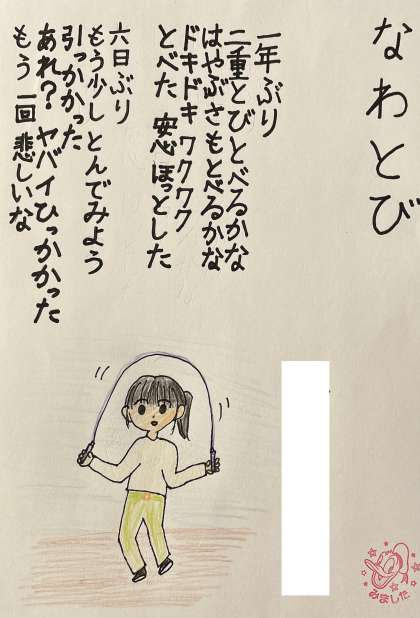 なわとび
一年ぶり
二重とびとべるかな
はやぶさもとべるかな
ドキドキ ワクワク
とべた 安心 ほっとした
六日ぶり
もう少し とんでみよう
引っかかった
あれ? ヤバイひっかかった
もう一回 悲しいな
みました